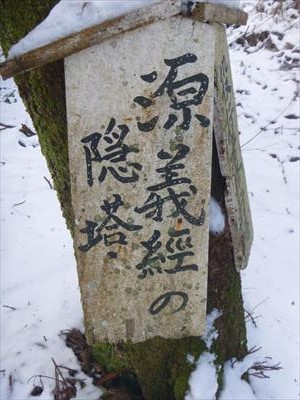 源義經の
隠塔